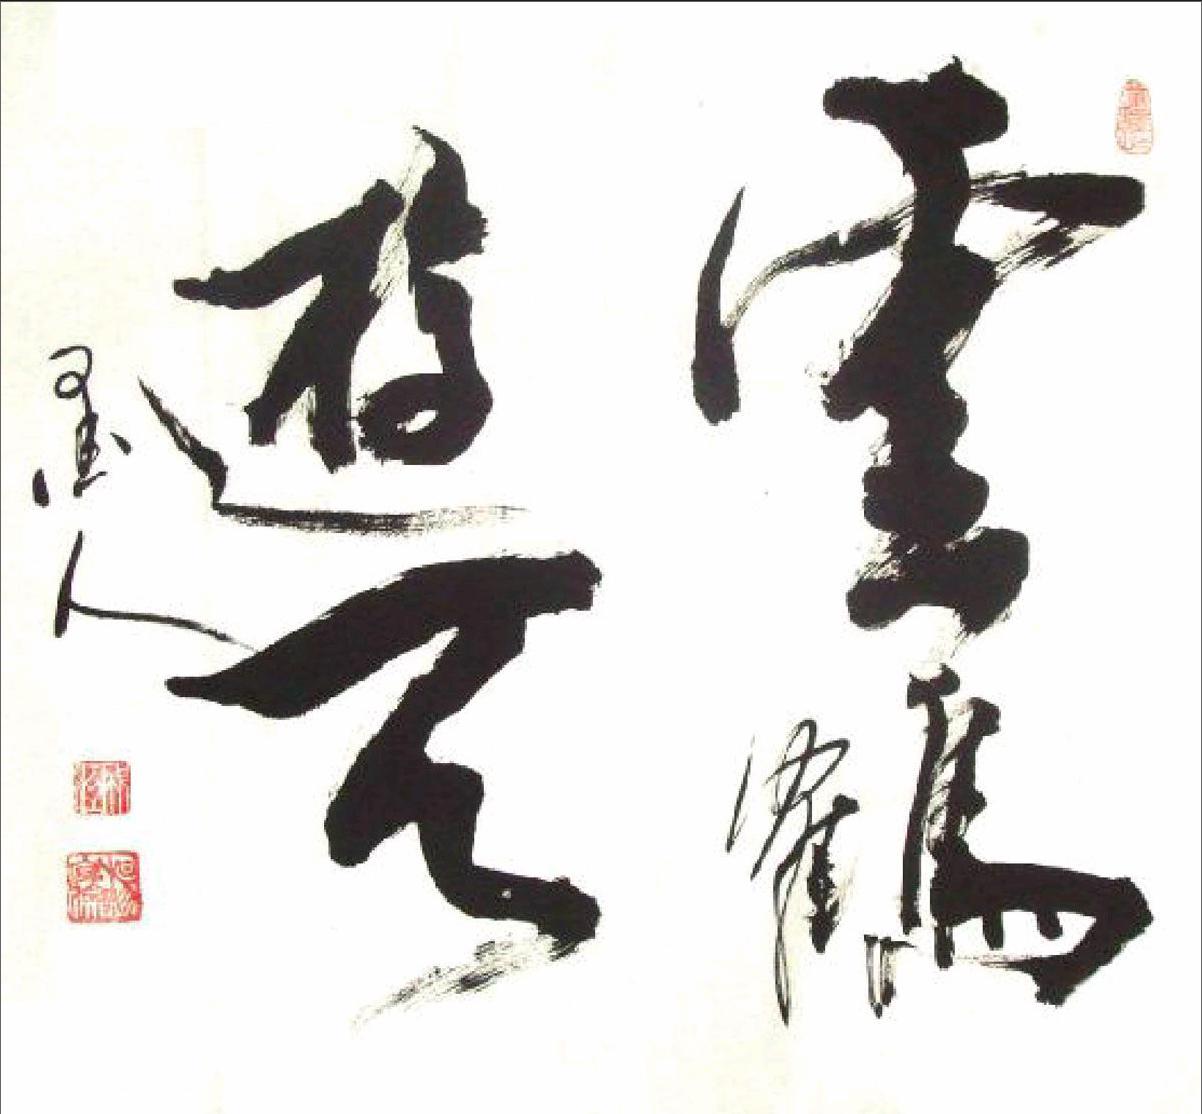 雲鶴
遊天
墨人